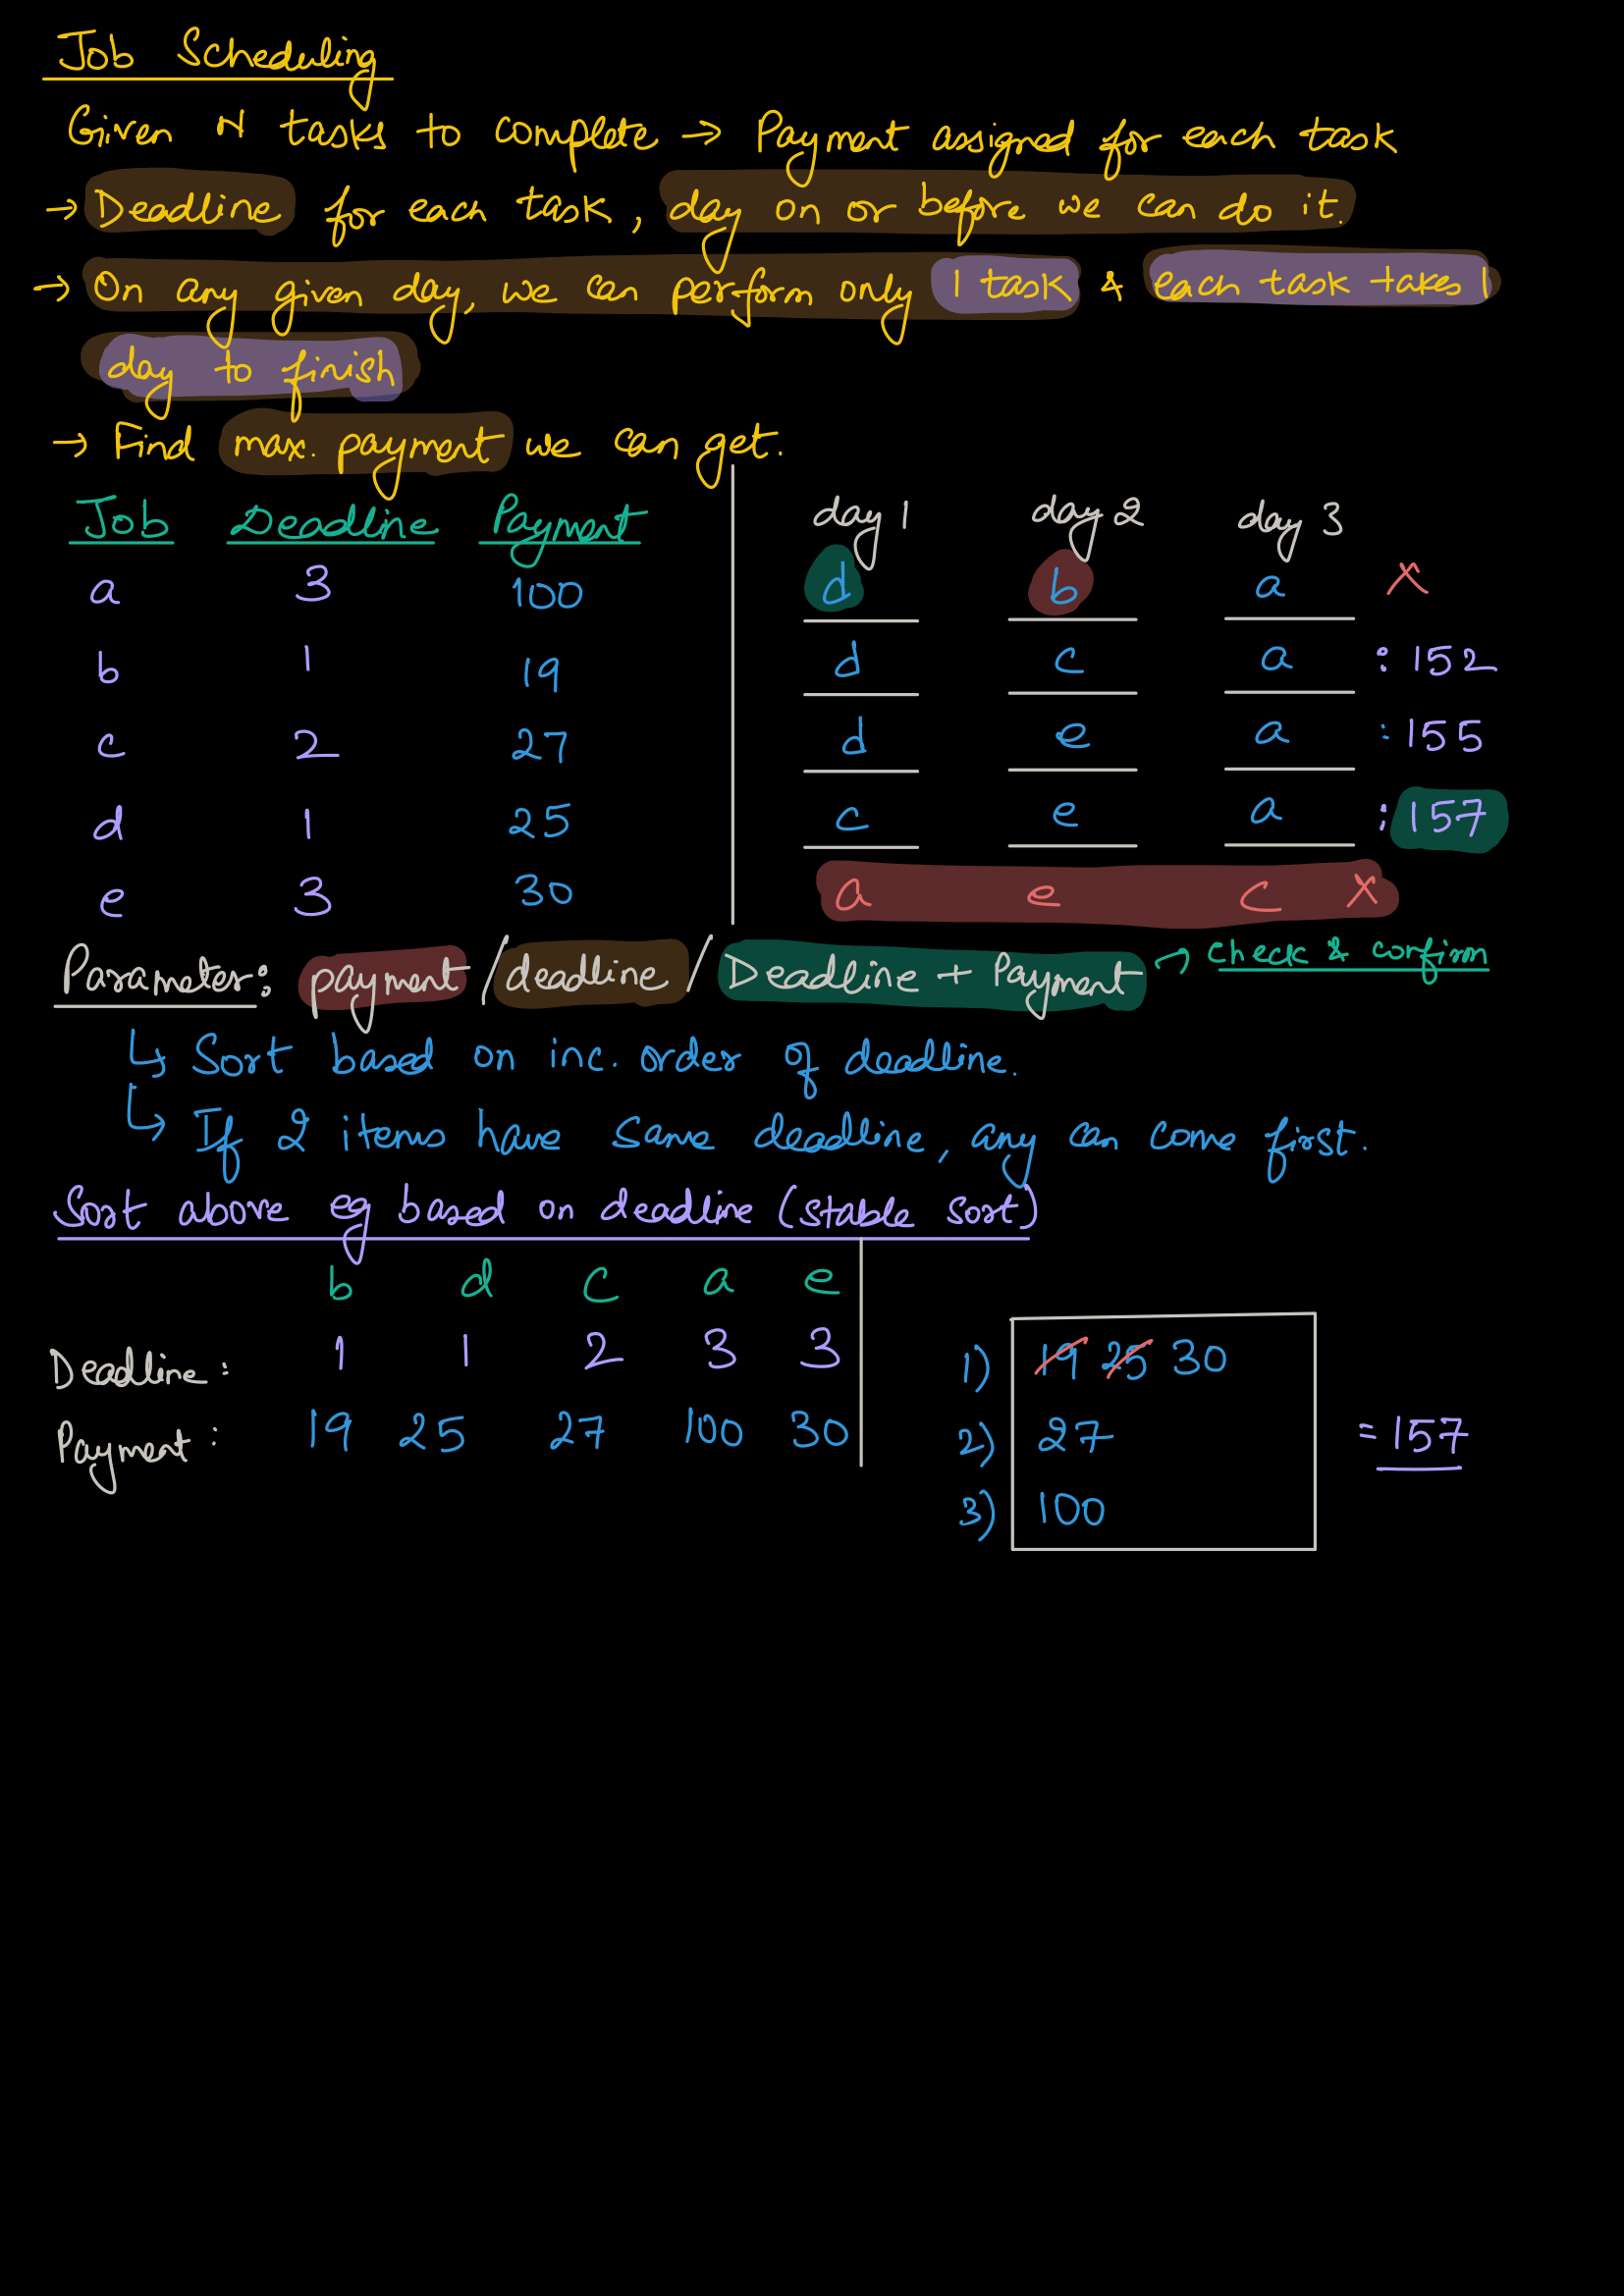 Job Scheduling
Given N tasks to complete → Payment assigned for each task
→ Deadline for each task, day on or before we can do it.
→ On any given day, we can perform only 1 task & each task takes 1
day to finish
→ Find max. payment we can get.
Job Deadline Payment
a 3 100
b 1 19
c 2 27
d 1 25
e 3 30
day 1 day 2 day 3
d b a ×
d c a : 152
d e a : 155
c e a : 157
a e c ×
Parameter: payment / deadline / Deadline + Payment → check & confirm
↳ Sort based on inc. order of deadline.
↳ If 2 items have same deadline, any can come first.
Sort above eg based on deadline (stable sort)
b d c a e
Deadline: 1 1 2 3 3
Payment: 19 25 27 100 30
1) 19 25 30
2) 27
3) 100
= 157